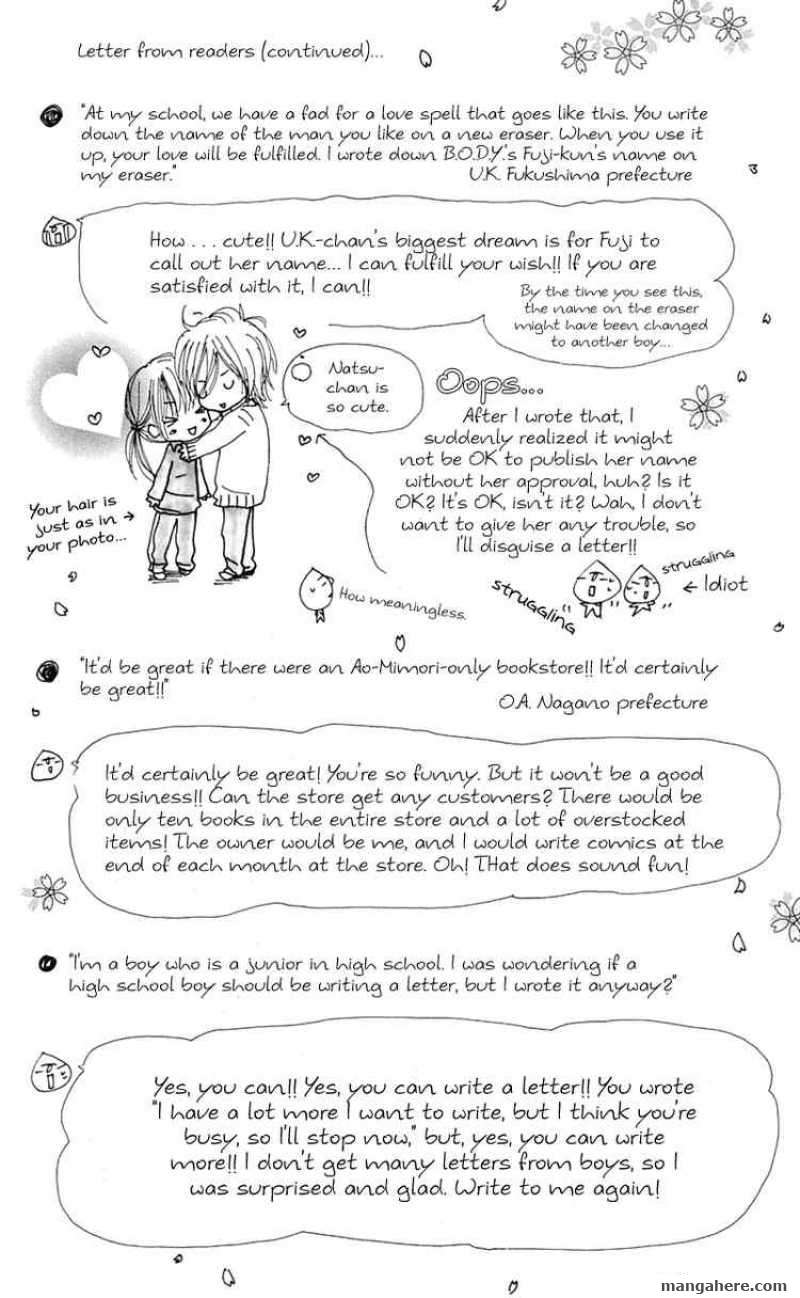 Letter from readers (continued)...
"At my school, we have a fad for a love spell that goes like this. You write
down the name of the man you like on a new eraser. When you use it
up, your love will be fulfilled. I wrote down B.O.D.Y.'s Fuji-kun's name on
my eraser."
U.K. Fukushima prefecture
How . . . cute!! U.K-chan's biggest dream is for Fuji to
call out her name... I can fulfill your wish!! If you are
satisfied with it, I can!!
By the time you see this,
the name on the eraser
might have been changed
to another boy...
Natsu-
chan is
so cute.
Oops...
After I wrote that, I
suddenly realized it might
not be OK to publish her name
without her approval, huh? Is it
OK? It's OK, isn't it? Wah, I don't
want to give her any trouble, so
I'll disguise a letter!!
Your hair is
just as in →
your photo...
How meaningless.
struggling
struggling
← Idiot
"It'd be great if there were an Ao-Mimori-only bookstore!! It'd certainly
be great!!"
O.A. Nagano prefecture
It'd certainly be great! You're so funny. But it won't be a good
business!! Can the store get any customers? There would be
only ten books in the entire store and a lot of overstocked
items! The owner would be me, and I would write comics at the
end of each month at the store. Oh! THat does sound fun!
"I'm a boy who is a junior in high school. I was wondering if a
high school boy should be writing a letter, but I wrote it anyway?"
Yes, you can!! Yes, you can write a letter!! You wrote
"I have a lot more I want to write, but I think you're
busy, so I'll stop now," but, yes, you can write
more!! I don't get many letters from boys, so I
was surprised and glad. Write to me again!
mangahere.com